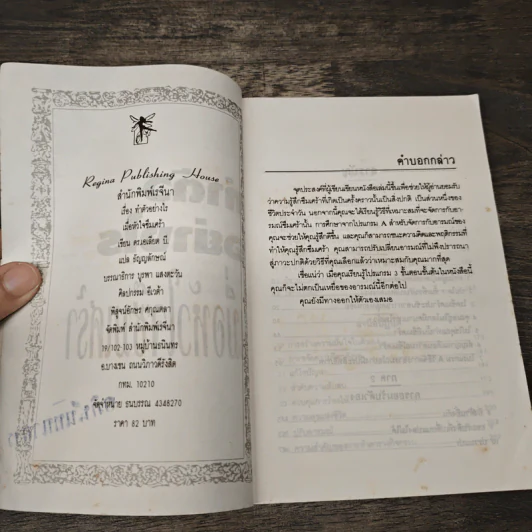 Regina Publishing House
สำนักพิมพ์เรจีนา
เรื่อง ทำตัวอย่างไร
เมื่อหัวใจซึมเศร้า
เขียน ดร.เอเลียต บี.
แปล ธัญญลักษณ์
บรรณาธิการ บูรพา แสงตะวัน
ศิลปกรรม อีเวต้า
พิสูจน์อักษร ศกุนตลา
จัดพิมพ์ สำนักพิมพ์เรจีนา
19/102-103 หมู่บ้านธนินทร
อ.บางเขน ถนนวิภาวดีรังสิต
กทม. 10210
จัดจำหน่าย ธนบรรณ 4348270
ราคา 82 บาท
คำบอกกล่าว
จุดประสงค์ที่ผู้เขียนเขียนหนังสือเล่มนี้ขึ้นเพื่อช่วยให้ผู้อ่านยอมรับ
ว่าความรู้สึกซึมเศร้าที่เกิดเป็นครั้งคราวนั้นเป็นสิ่งปกติ เป็นส่วนหนึ่งของ
ชีวิตประจำวัน นอกจากนี้คุณจะได้เรียนรู้วิธีที่เหมาะสมที่จะจัดการกับอา
รมณ์ซึมเศร้านั้น การศึกษาจากโปรแกรม A สำหรับจัดการกับอารมณ์ของ
คุณจะช่วยให้คุณรู้สึกดีขึ้น และคุณก็สามารถชนะความคิดและพฤติกรรมที่
ทำให้คุณรู้สึกซึมเศร้า คุณสามารถปรับเปลี่ยนอารมณ์ที่ไม่พึงปรารถนา
สู่ภาวะปกติด้วยวิธีที่คุณเลือกแล้วว่าเหมาะสมกับคุณมากที่สุด
เชื่อแน่ว่า เมื่อคุณเรียนรู้โปรแกรม 3 ขั้นตอนขั้นต้นในหนังสือนี้
คุณก็จะไม่ตกเป็นเหยื่อของอารมณ์นี้อีกต่อไป
คุณยังมีทางออกให้ตัวเองเสมอ